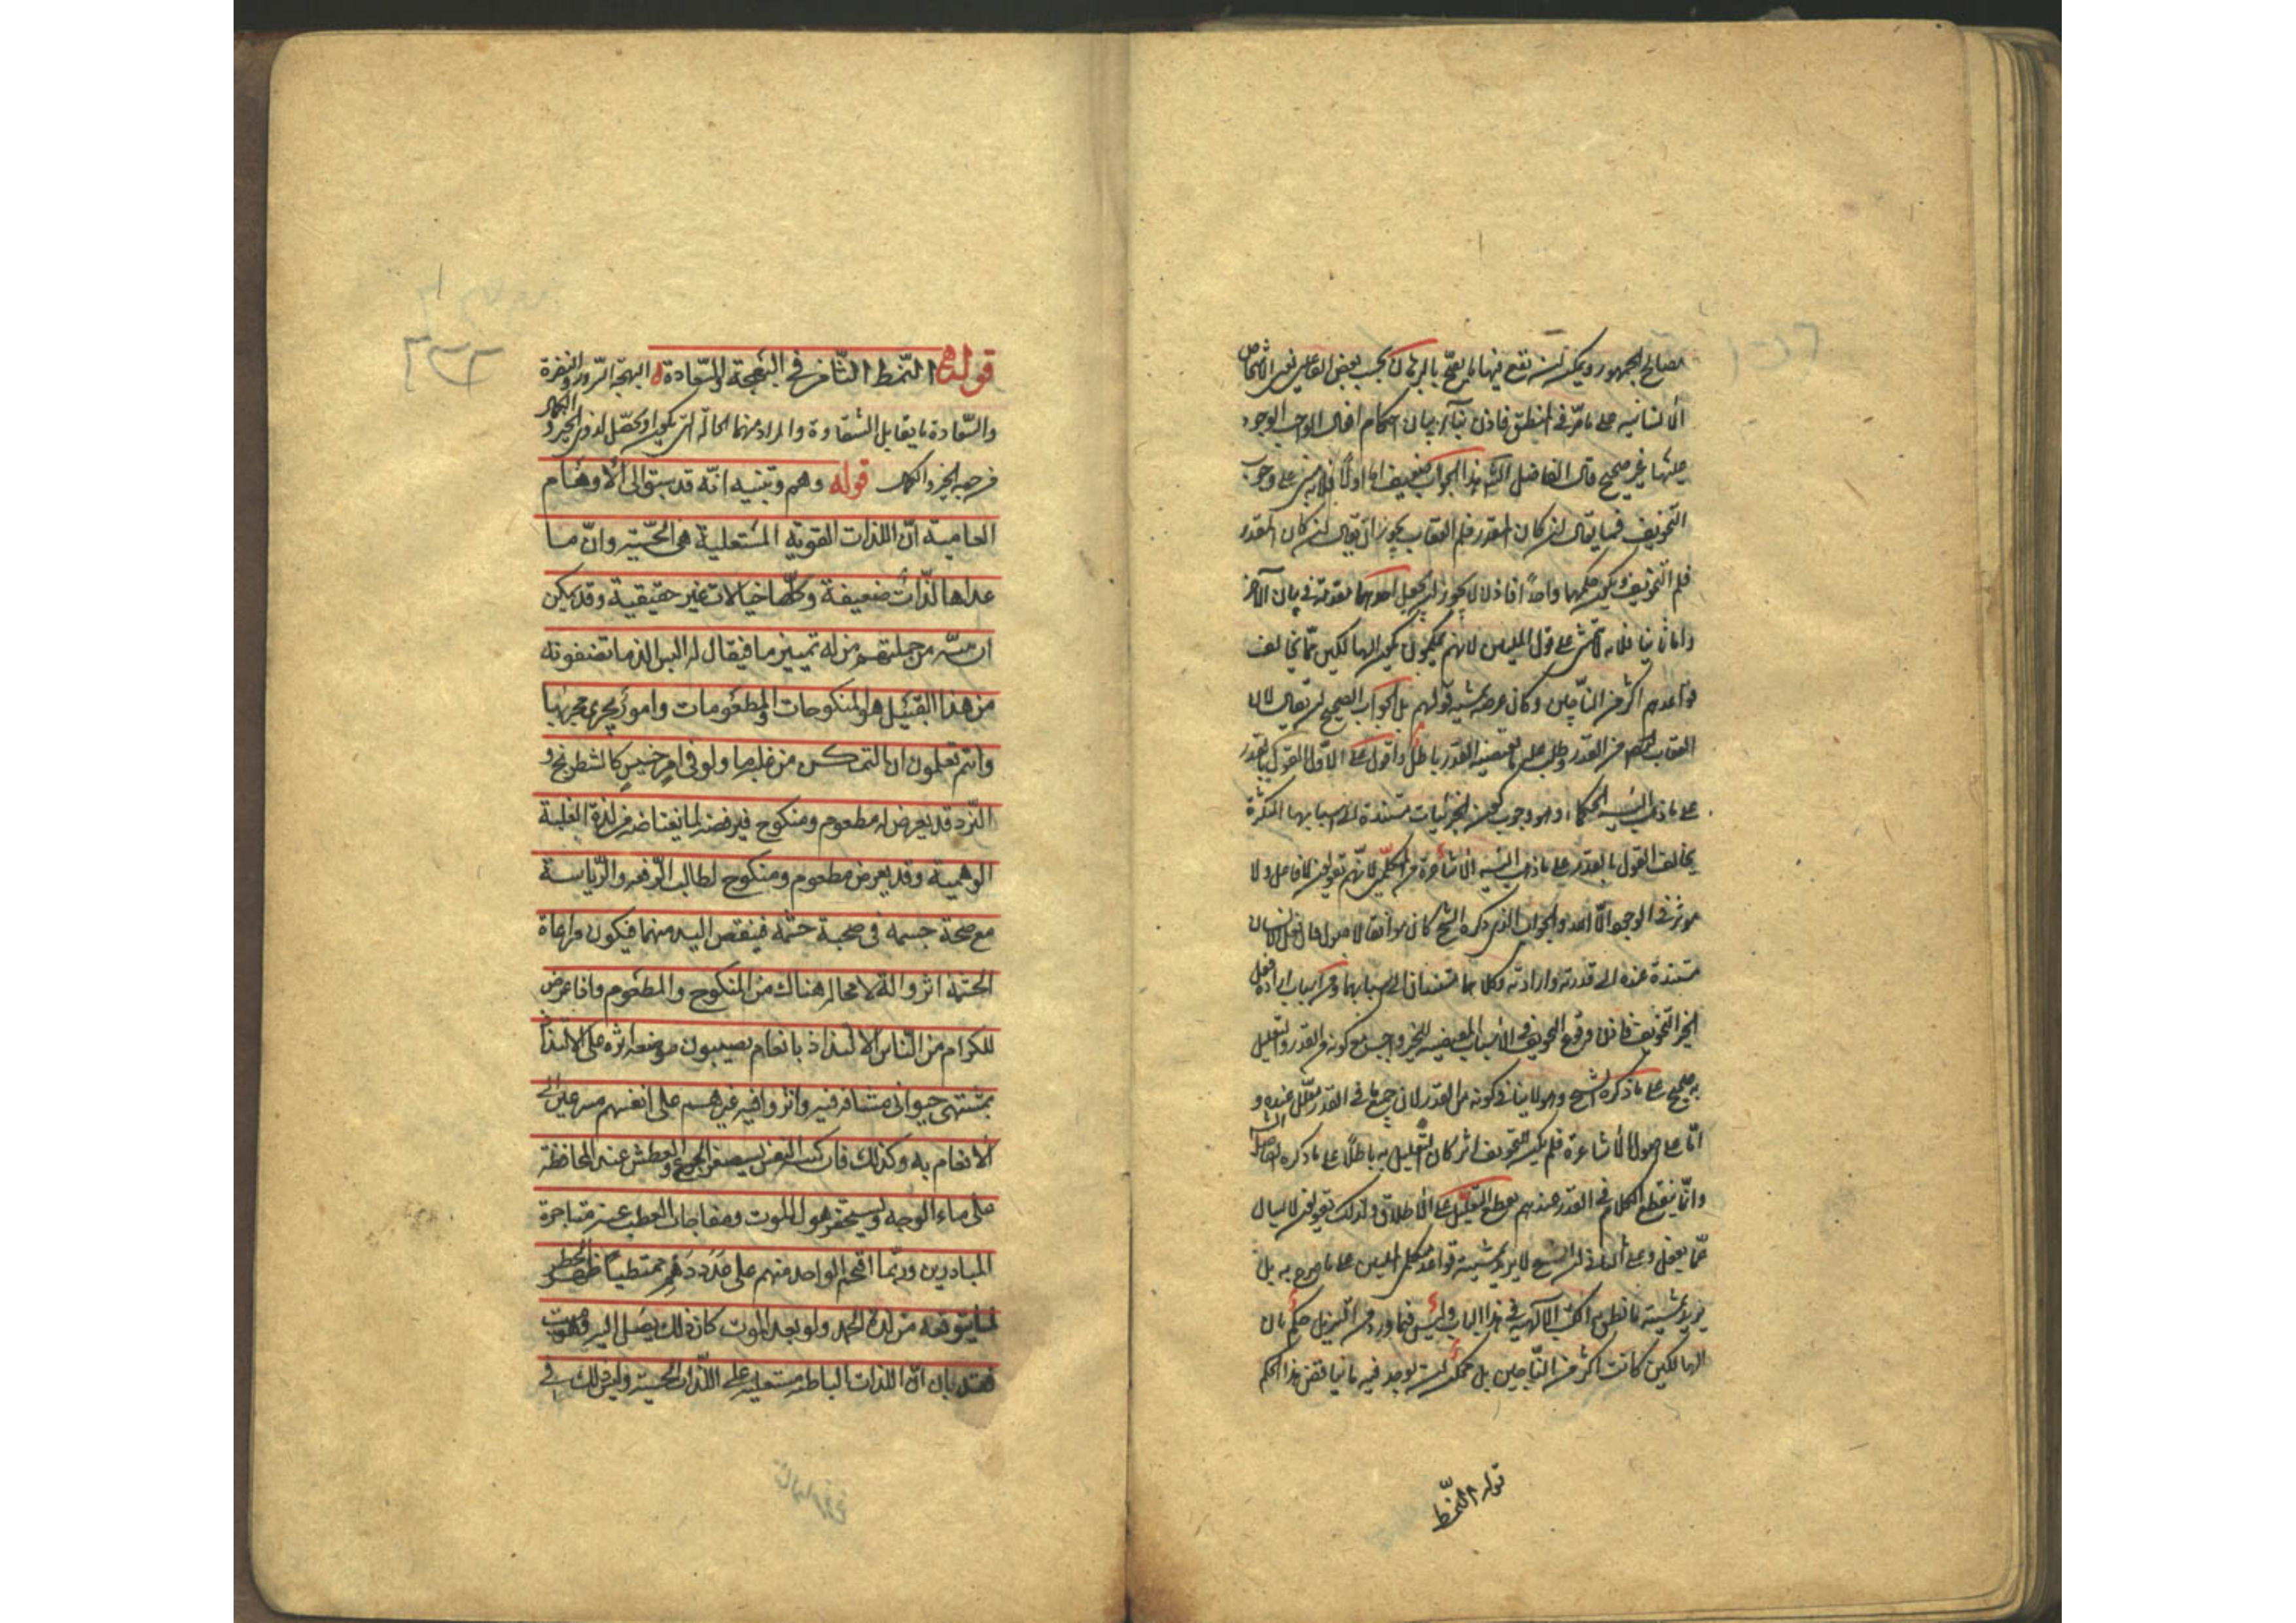 مصالح الجمهور ويمكن ان تقع فيها ما يصح بالبرهان بحسب بعض الفاعلين نعنى الاشخاص
الانسانية على ما مر فى المنطق فاذن بناء بيان احكام افعال الواجب الوجود
عليها غير صحيح قال الفاضل الشارح هذا الجواب ضعيف اما اولا فلانه مبنى على وجوب
التخويف فيما يقال ان كان القدر فلم العقاب يجوز ان يقال ان كان القدر
فلم التخويف ويكون حكمهما واحدا فاذن لا يجوز ان يجعل احدهما مقدمة فى بيان الآخر
واما ثانيا فلانه لا يتمشى على قول المليين لانهم يحكمون بكون الهالكين مما يخالف
قواعدهم اكثر من الناجين وكان غرضه تمشية قولهم بل الجواب الصحيح ان يقال لان
العقاب ايضا من القدر وطلب علة ما يقتضيه القدر باطل واقول على الاول القول بالقدر
على ما ذهب اليه الحكماء وهو وجوب كون الجزئيات مستندة الى اسبابها المتكثرة
يخالف القول بالقدر على ما ذهب اليه الاشاعرة من المتكلمين لانهم يقولون لا فاعل ولا
مؤثر فى الوجود الا الله والجواب الذى ذكره الشيخ كان موافقا لاصوله فان فعل الانسان
مستندة عنده الى قدرته وارادته وكلاهما مستندان الى اسبابهما ومن اسباب ارادة فعل
الخير التخويف فاذن وقوع التخويف فى الاسباب المقتضية للخير واجب مع كونه من القدر والتعليل
به صحيح على ما ذكره الشيخ وهو لا ينافى كونه من القدر لان جميع ما فى القدر معلل عنده و
اما على اصول الاشاعرة فلم يكن للتخويف اثر كان التعليل به باطلا على ما ذكره الفاضل الشارح
وانما ينقطع الكلام فى القدر عندهم بقطع التعليل على الاطلاق ولذلك يقولون لا يسال
عما يفعل وعلى الثانى ان الشيخ لا يريد تمشية قواعد متكلمى المليين على ما صرح به بل
يريد تمشية ما نطق به الكتب الالهية فى هذا الباب وليس فيما ورد من التنزيل حكم بان
الهالكين كانت اكثر من الناجين بل يمكن ان يوجد فيه ما يناقض هذا الحكم
قوله النمط
قوله النمط الثامن فى البهجة والسعادة البهجة السرور والنضرة
والسعادة ما يقابل الشقاوة والمراد منهما الحالة التى تكون او تحصل لذوى الخير والكمال
من جهة الخير والكمال قوله وهم وتنبيه انه قد سبق الى الاوهام
العامية ان اللذات القوية المستعلية هى الحسية وان ما
عداها لذات ضعيفة وكلها خيالات غير حقيقية وقد يمكن
ان ينبه من جملتهم من له تمييز ما فيقال له اليس الذ ما تصفونه
من هذا القبيل هو المنكوحات والمطعومات وامور تجرى مجريها
وانتم تعلمون ان المتمكن من غلبة ما ولو فى امر خسيس كالشطرنج و
النرد قد يعرض له مطعوم ومنكوح فيرفضه لما يعتاضه من لذة الغلبة
الوهمية وقد يعرض مطعوم ومنكوح لطالب العفة والرياسة
مع صحة جسمه فى صحبة حشمه فينفض اليد منهما فيكون مراعاة
الحشمة اثر والذ لا محالة هناك من المنكوح والمطعوم واذا عرض
للكرام من الناس الالتذاذ بانعام يصيبون موضعه اثروه على الالتذاذ
بمشتهى حيوانى متنافس فيه واثروا فيه غيرهم على انفسهم مسرعين الى
الانعام به وكذلك فان كبير النفس يستصغر الجوع والعطش عند المحافظة
على ماء الوجه ويستحقر هول الموت ومفاجاة العطب عند مناجزة
المبارزين وربما اقتحم الواحد منهم على عدد دهم ممتطيا ظهر الخطر
لما يتوقعه من لذة الحمد ولو بعد الموت كان ذلك يصل اليه وهو ميت
فقد بان ان اللذات الباطنة مستعلية على اللذات الحسية وليس ذلك فى